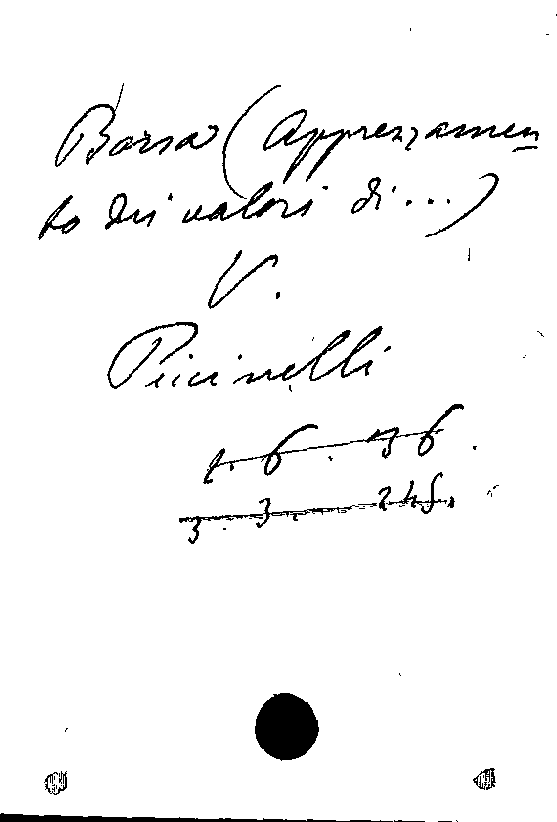 Borsa (Apprezzamen
to dei valori di...)
V.
Piccinelli
1. 6. 136.
3. 3. 245.